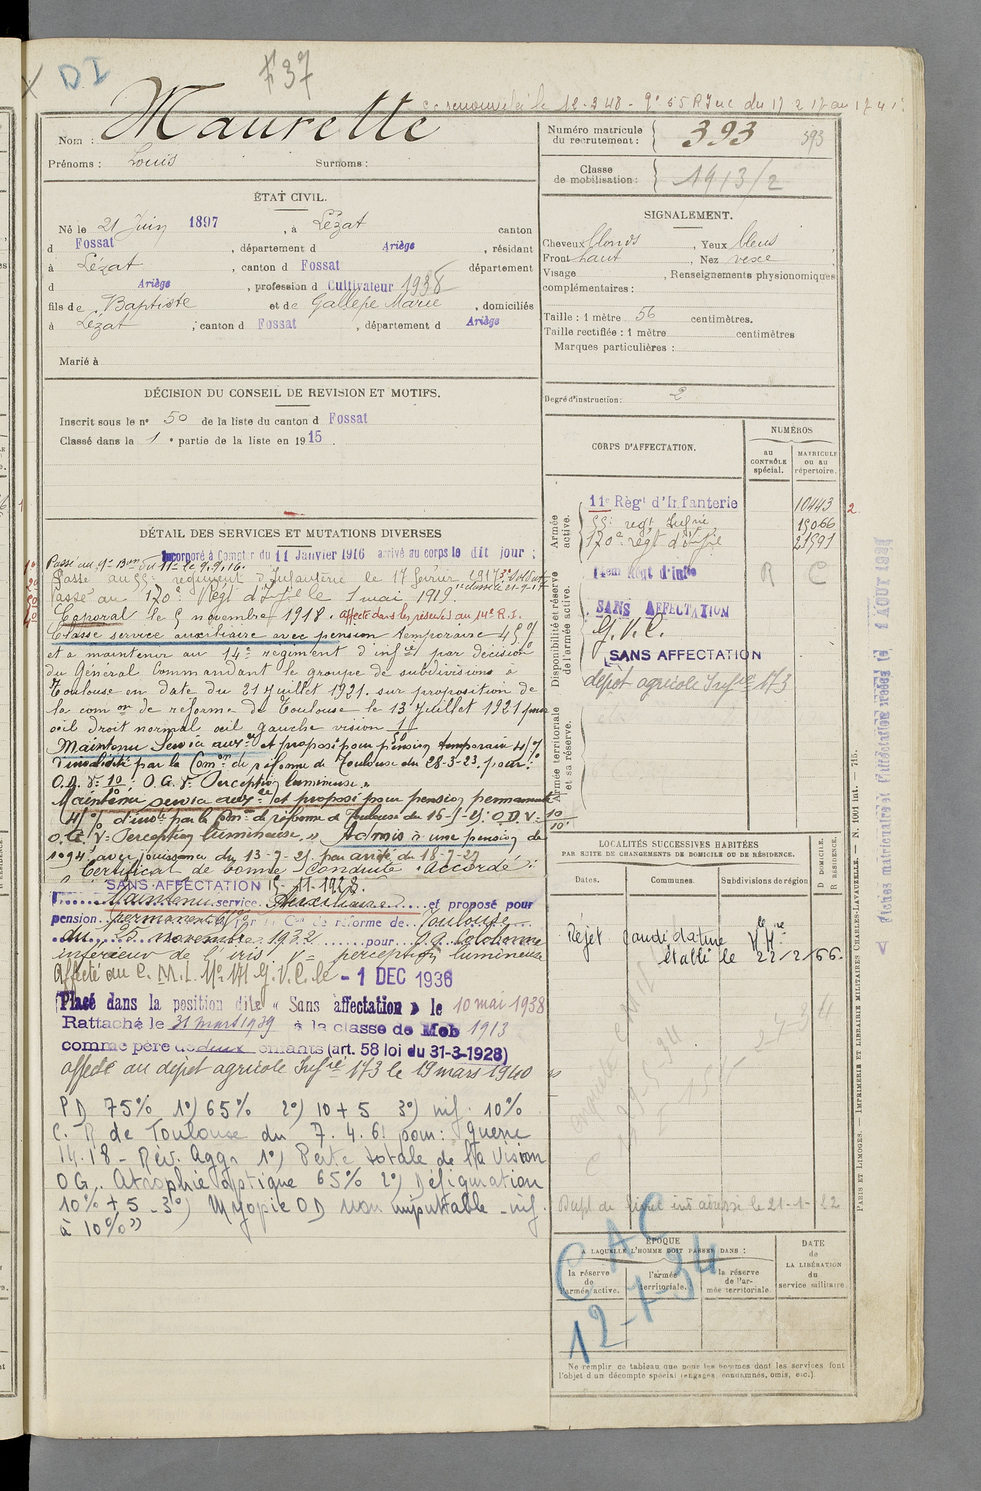 DI
F37
12-2-48 - 9e 55 R Inf du 17 2 17 au 17 4 1
Nom : Maurette
Prénoms : Louis Surnoms :
ÉTAT CIVIL.
Né le 21 Juin 1897, à Lézat canton
d Fossat, département d Ariège, résidant
à Lézat, canton d Fossat département
d Ariège, profession d Cultivateur 1938
fils de Baptiste et de Gallepe Marie, domiciliés
à Lézat, canton d Fossat, département d Ariège
Marié à
DÉCISION DU CONSEIL DE REVISION ET MOTIFS.
Inscrit sous le n° 50 de la liste du canton d Fossat
Classé dans la 1e partie de la liste en 1915.
DÉTAIL DES SERVICES ET MUTATIONS DIVERSES
Incorporé à Compter du 11 Janvier 1916 arrivé au corps le dit jour ;
Passé au 9e Bon du 11e le 9.9.16.
Passé au 55e régiment d'Infanterie le 17 février 1917
Passé au 170e Régt d'Infie le 1 mai 1919
Caporal le 5 novembre 1918. affecté dans les réserves au 14e R.I.
Classé service auxiliaire avec pension temporaire 45%
et à maintenir au 14e régiment d'infie par décision
du Général Commandant le groupe de subdivisions à
Toulouse en date du 21 juillet 1921. sur proposition de
la com on de réforme de Toulouse le 13 juillet 1921 pour
œil droit normal œil gauche vision
Maintenu Service auxre et proposé pour pension temporaire
d'invalidité par la Comon de réforme de Toulouse du 28-3-23. pour :
O.D. V= 10 : O.G. V= Perception lumineuse »
Maintenu service auxre et proposé pour pension permanente
d'invté par la Comon de réforme de Toulouse du 16-5-25 : O.D. V= 10/10
O.G. V= Perception lumineuse » Admis à une pension de
1094 avec jouissance du 13-7-25 par arrêté du 18-7-27
Certificat de bonne Conduite "Accordé"
SANS AFFECTATION 15-11-1928.
Maintenu service Auxiliaire et proposé pour
pension permanente par la Con de réforme de Toulouse
du 25 novembre 1932 pour O.G. Colobome
inférieur de l'iris V= perception lumineuse
Affecté au C.M.I. G.V.C. le - 1 DEC 1936
Placé dans la position dite « Sans affectation » le 10 mai 1938
Rattaché le 31 mars 1939 à la classe de Mob 1913
comme père de deux enfants (art. 58 loi du 31-3-1928)
affecté au dépôt agricole Infie 173 le 19 mars 1940
PD 75% 1°) 65% 2°) 10 + 5 3°) inf. 10%
C. R de Toulouse du 7.4.61 pour : guerre
14.18 - Rév. Aggr 1°) Perte totale de la vision
OG. Atrophie optique 65% 2°) Défiguration
10% + 5 - 3°) Myopie OD non imputable - inf.
à 10% »
Numéro matricule
du recrutement : 393 393
Classe
de mobilisation : 1913/2
SIGNALEMENT.
Cheveux blonds, Yeux bleus,
Front haut, Nez vexe
Visage, Renseignements physionomiques
complémentaires :
Taille : 1 mètre 56 centimètres.
Taille rectifiée : 1 mètre centimètres
Marques particulières :
Degré d'instruction : 2
CORPS D'AFFECTATION.
NUMÉROS
au
CONTRÔLE
spécial.
MATRICULE
ou au
répertoire.
Armée
active.
11e Régt d'Infanterie 10443
55e régt Infrie 15066
170e régt d'Infie 21591
Disponibilité et réserve
de l'armée active.
14em Régt d'Infie R C
SANS AFFECTATION
G.V.C.
SANS AFFECTATION
dépôt agricole Infrie 173
Armée territoriale
et sa réserve.
LOCALITÉS SUCCESSIVES HABITÉES
PAR SUITE DE CHANGEMENTS DE DOMICILE OU DE RÉSIDENCE.
D DOMICILE.
R RÉSIDENCE.
Dates. Communes. Subdivisions de région
Rejet candidature
établi le 22/2/66.
Dupl de livret ind adressé le 21-1-22
CAC
12-1-34
ÉPOQUE
A LAQUELLE L'HOMME DOIT PASSER DANS :
la réserve
de
l'armée active.
l'armée
territoriale.
la réserve
de l'ar-
mée territoriale.
DATE
de
LA LIBÉRATION
du
service militaire
Ne remplir ce tableau que pour les hommes dont les services font
l'objet d'un décompte spécial (engagés, condamnés, omis, etc.).
PARIS ET LIMOGES. — IMPRIMERIE ET LIBRAIRIE MILITAIRES CHARLES-LAVAUZELLE. — N. 1001 int. — 715.